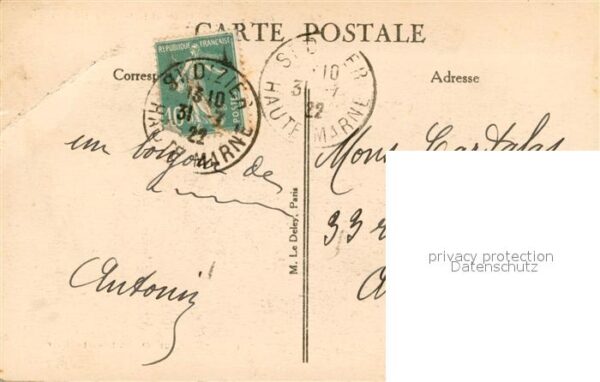 CARTE POSTALE
RÉPUBLIQUE FRANÇAISE
POSTES
10
ST DIZIER
13 10
31 - 7
22
HAUTE MARNE
ST DIZIER
10
31 - 7
22
HAUTE MARNE
Corresp
Adresse
un bonjour de
Antonin
M. Le Deley, Paris
Mons
33 r
privacy protection
Datenschutz